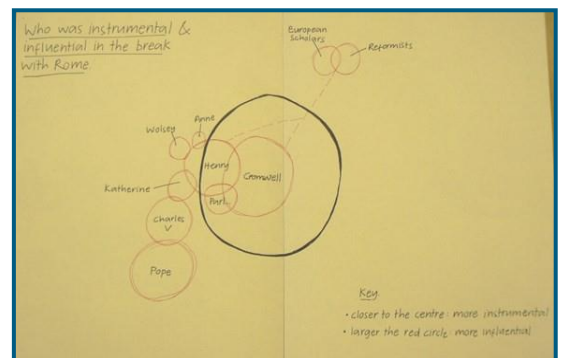 Who was instrumental &
influential in the break
with Rome.
European
Scholars
Reformists
Wolsey
Anne
Henry
Cromwell
Katherine
Parl.
Charles
V
Pope
Key
• closer to the centre: more instrumental
• larger the red circle: more influential